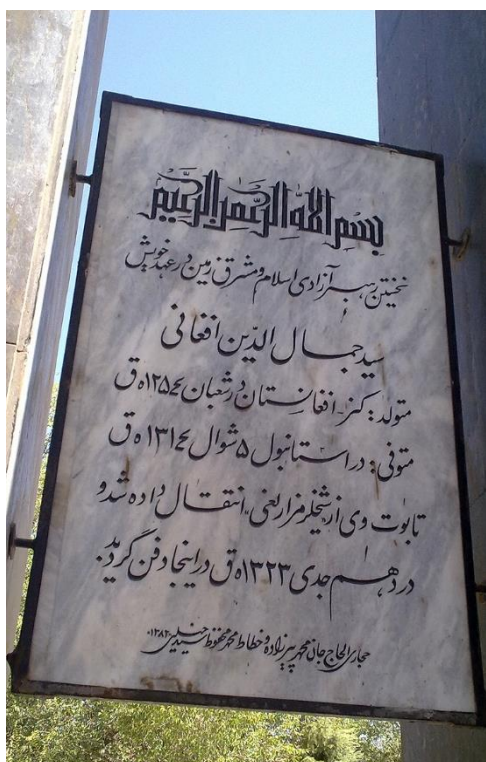 بسم الله الرحمن الرحیم
نخستین رهبر آزادی اسلام و مشرق زمین در عهد خویش
سید جمال الدین افغانی
متولد: کنر - افغانستان در شعبان ۱۲۵۴ ه ق
متوفی: در استانبول ۵ شوال ۱۳۱۴ ه ق
تابوت وی از شیخلر مزارلغی، انتقال داده شد و
در دهم جدی ۱۳۲۳ ه ق در اینجا دفن گردید.
حجاری الحاج جان محمد پیرزاده و خطاط محمد محفوظ